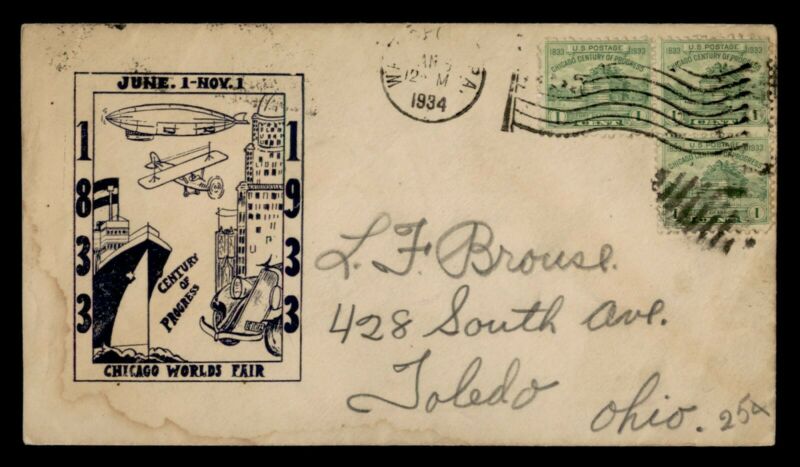 JUNE. 1-NOV. 1
1833
1933
CENTURY
OF
PROGRESS
CHICAGO WORLDS FAIR
PA.
12 M
1934
1833 U.S. POSTAGE 1933
CHICAGO CENTURY OF PROGRESS
1 CENT 1
1833 U.S. POSTAGE 1933
CHICAGO CENTURY OF PROGRESS
1 CENT 1
U.S. POSTAGE
CHICAGO CENTURY OF PROGRESS
CENT 1
L. F. Brouse.
428 South Ave.
Toledo
Ohio.
25¢